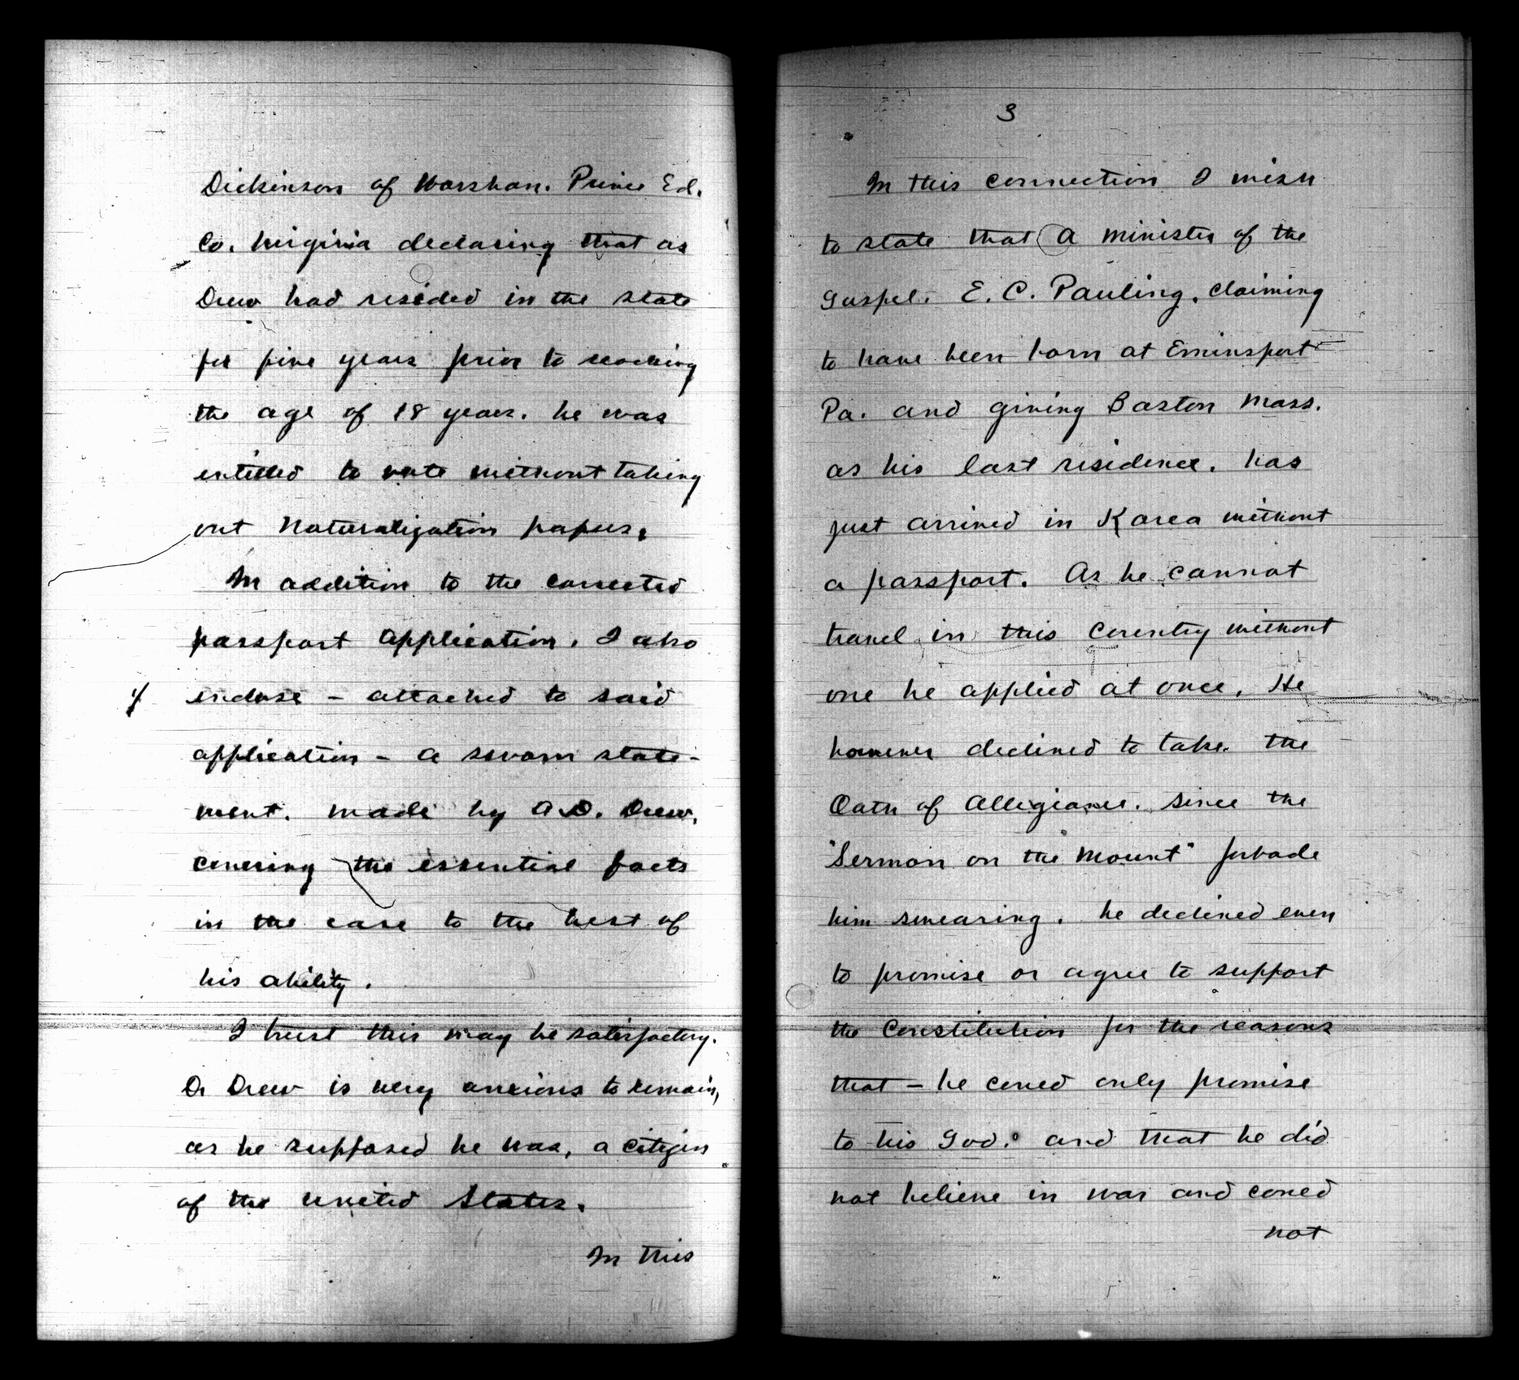 Dickinson of Worshan. Prince Ed.
Co. Virginia declaring that as
Drew had resided in the state
for five years prior to reaching
the age of 18 years. he was
entitled to vote without taking
out Naturalization papers.
In addition to the corrected
passport application, I also
4 enclose – attached to said
application – a sworn state-
ment. made by A.D. Drew,
covering the essential facts
in the case to the best of
his ability.
I trust this may be satisfactory.
Dr Drew is very anxious to remain,
as he supposed he was, a citizen
of the United States.
In this
3
In this connection I wish
to state that a minister of the
Gospel. E. C. Pauling, claiming
to have been born at Eminsport
Pa. and giving Boston Mass.
as his last residence. has
just arrived in Korea without
a passport. As he cannot
travel in this country without
one he applied at once. He
however declined to take the
Oath of Allegiance. Since the
"Sermon on the Mount" forbade
him swearing. he declined even
to promise or agree to support
the Constitution for the reasons
that – he could only promise
to his God. and that he did
not believe in war and could
not